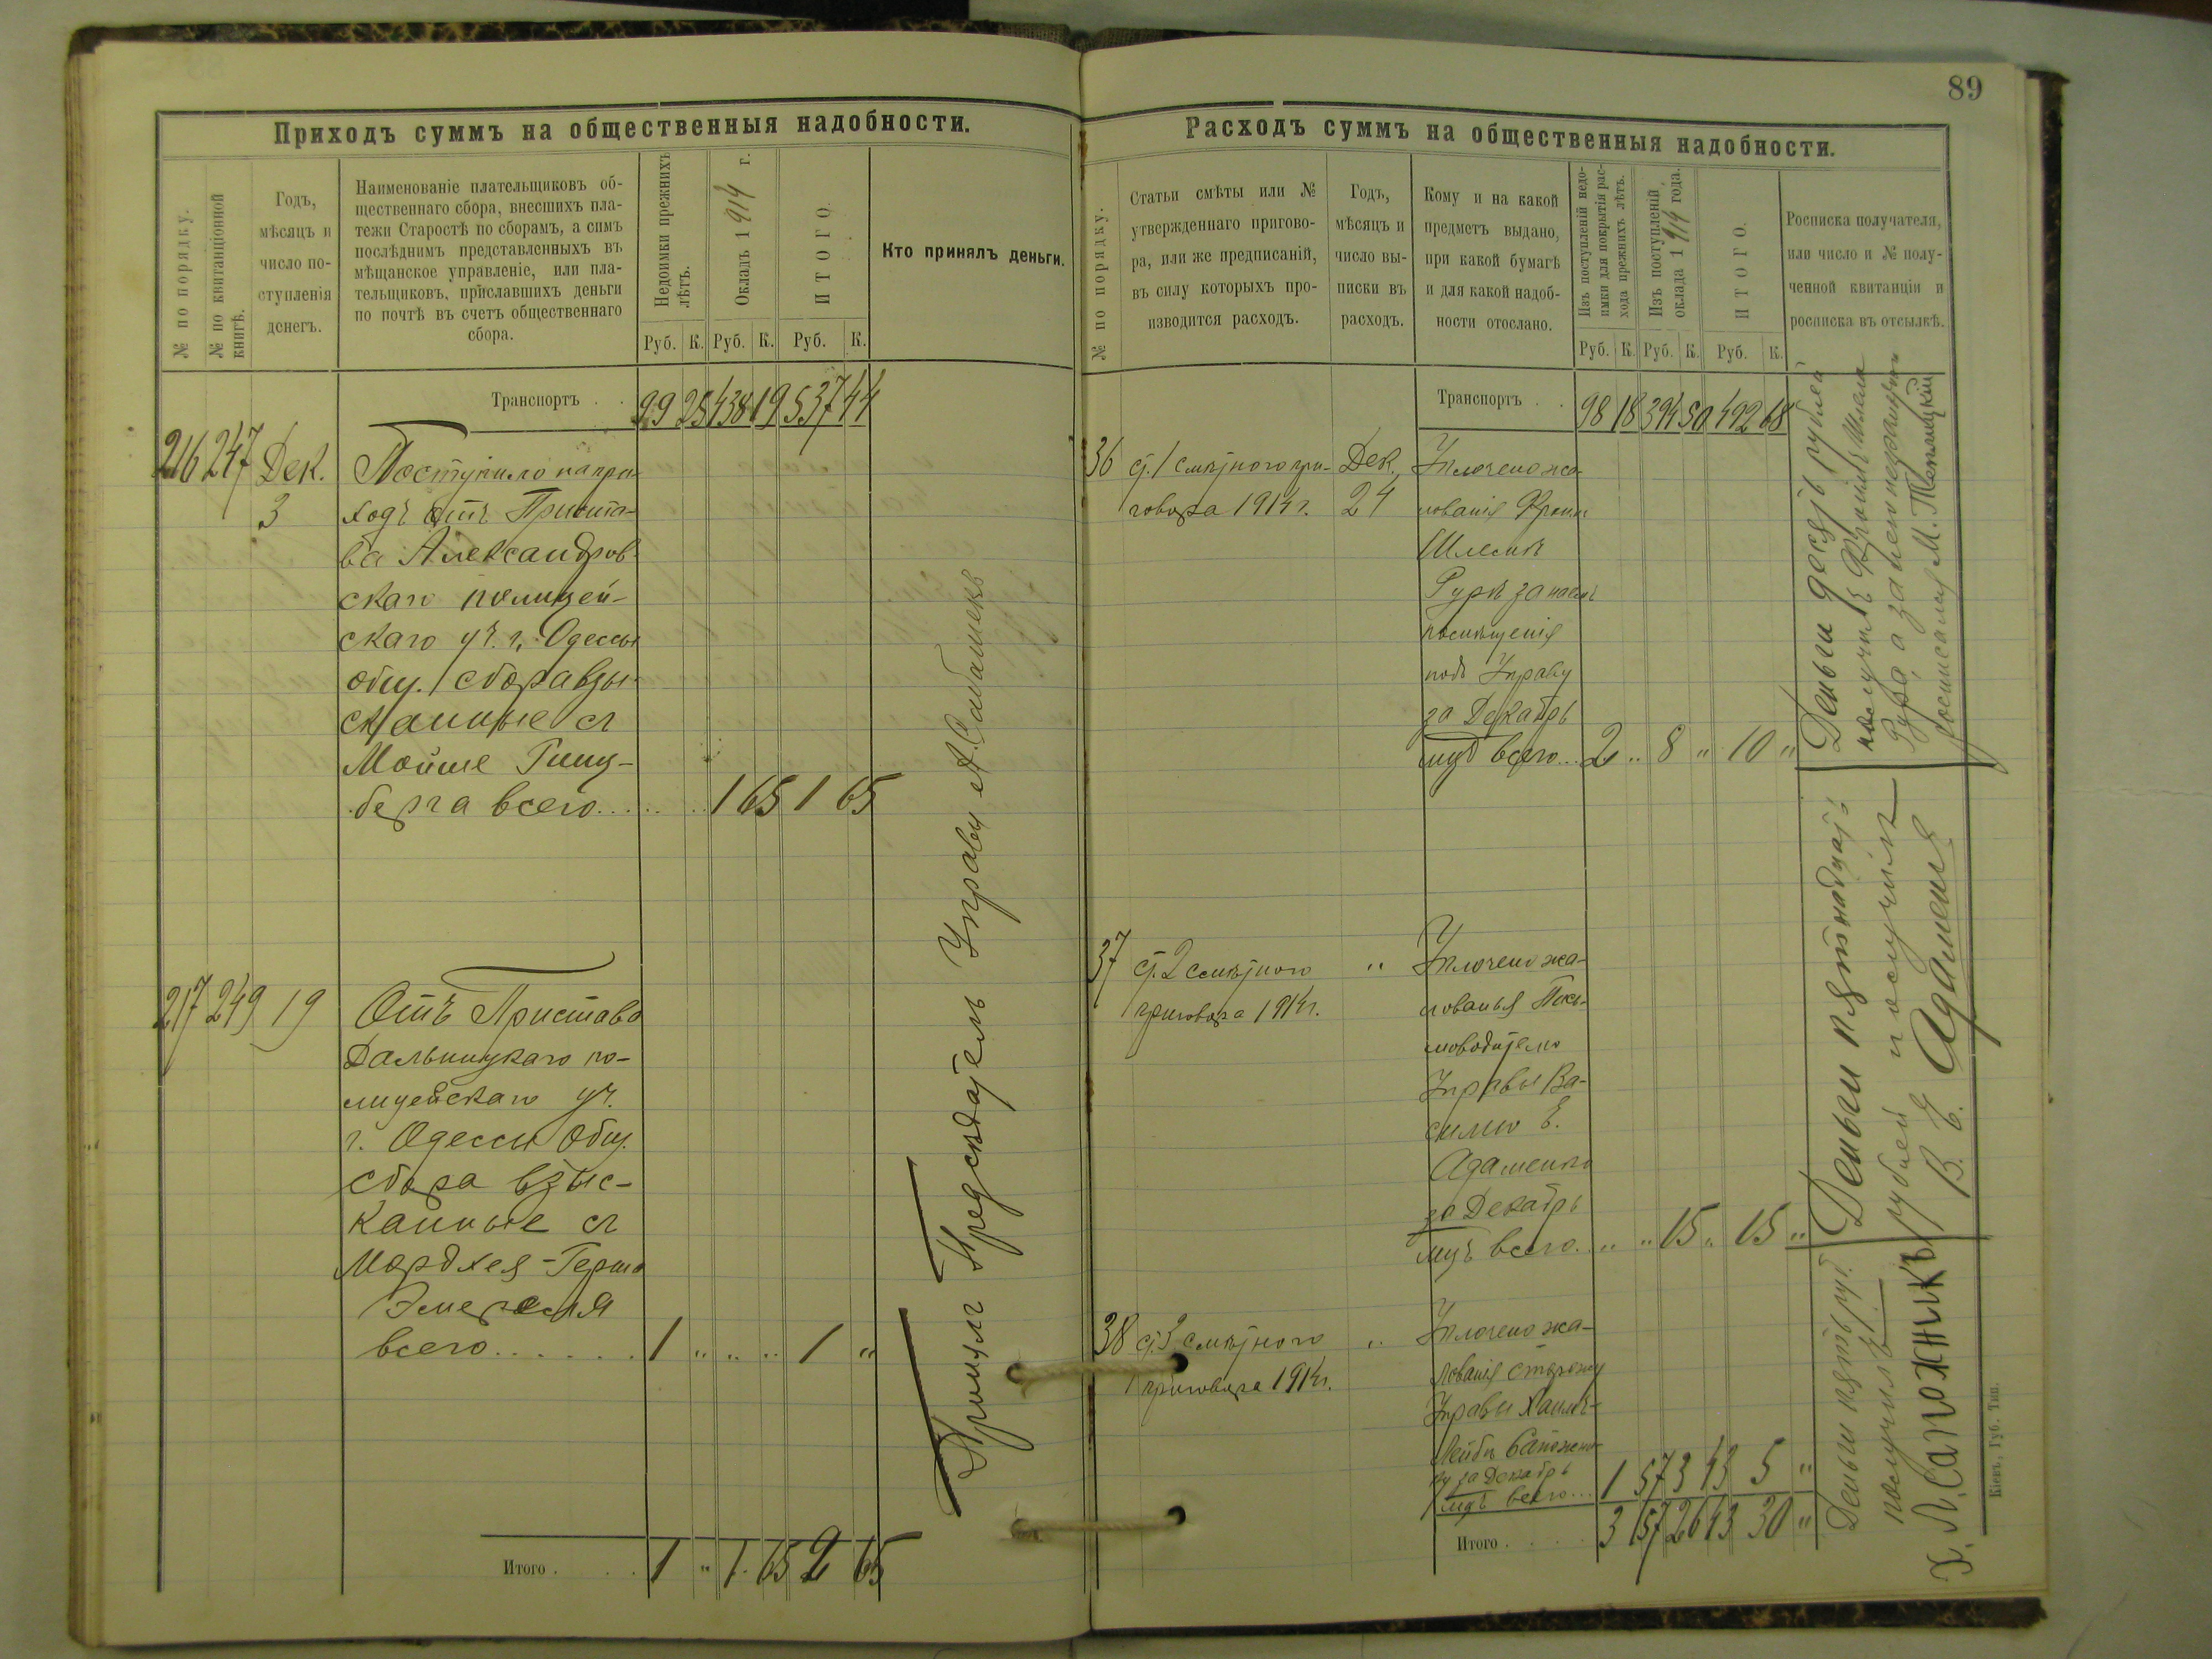 89
Приходъ суммъ на общественныя надобности.
№ по порядку.
№ по квитанціонной
книгѣ.
Годъ,
мѣсяцъ и
число по-
ступленія
денегъ.
Наименованіе плательщиковъ об-
щественнаго сбора, внесшихъ пла-
тежи Старостѣ по сборамъ, а симъ
послѣднимъ представленныхъ въ
мѣщанское управленіе, или пла-
тельщиковъ, приславшихъ деньги
по почтѣ въ счетъ общественнаго
сбора.
Недоимки прежнихъ
лѣтъ.
Окладъ 1914 г.
ИТОГО.
Руб. К. Руб. К. Руб. К.
Кто принялъ деньги.
Транспортъ . . 99 25 438 19 537 44
216 247 Дек. Поступило на при-
3 ходъ отъ Приста-
ва Александров-
скаго полицей-
скаго уч. г. Одессы
общ. сбора взы-
сканные съ
Мойше Гинц-
берга всего... 1 65 1 65
217 249 19 Отъ Пристава
Дальницкаго по-
лицейскаго уч.
г. Одессы общ.
сбора взыс-
канные съ
Мордхея-Герша
всего...... 1 " " " 1 "
Принялъ Предсѣдатель Управы А. Сабашекъ
Итого . . . 1 " 1 65 2 65
Расходъ суммъ на общественныя надобности.
№ по порядку.
Статьи смѣты или №
утвержденнаго пригово-
ра, или же предписаній,
въ силу которыхъ про-
изводится расходъ.
Годъ,
мѣсяцъ и
число вы-
писки въ
расходъ.
Кому и на какой
предметъ выдано,
при какой бумагѣ
и для какой надоб-
ности отослано.
Изъ поступленій недо-
имки для покрытія рас-
хода прежнихъ лѣтъ.
Изъ поступленій
оклада 1914 года.
ИТОГО.
Руб. К. Руб. К. Руб. К.
Росписка получателя,
или число и № полу-
ченной квитанціи и
росписка въ отсылкѣ.
Транспортъ . . 98 18 394 50 492 68
36 ст. 1 смѣтного при- Дек. Уплочено жа-
говора 1914 г. 24 лованія Фроим
Шлемѣ
Гурѣ за наемъ
помѣщенія
подъ Управу
за Декабрь
мцъ всего... 2 " 8 " 10 "
Деньги десять рублей
получилъ Фроимъ Шлема
Гура а за него неграмотн
росписался М. Теплицкій
37 ст. 2 смѣтного " Уплочено жа-
приговора 1914 г. лованья
Управы Ва-
силію Е.
Адаменко
за Декабрь
мцъ всего... " " 15 " 15 "
Деньги пятнадцать
рублей получилъ
В. Е. Адаменко
38 ст. 3 смѣтного " Уплочено жа-
приговора 1914 г. лованія сторожу
Управы Хаимъ-
Лейбѣ Сапожни-
ку за Декабрь
мцъ всего... 1 57 3 43 5 "
Деньги пять руб.
получилъ
Х. Л. Сапожникъ
Итого . . . . 3 57 26 43 30 "
Кіевъ, Губ. Тип.